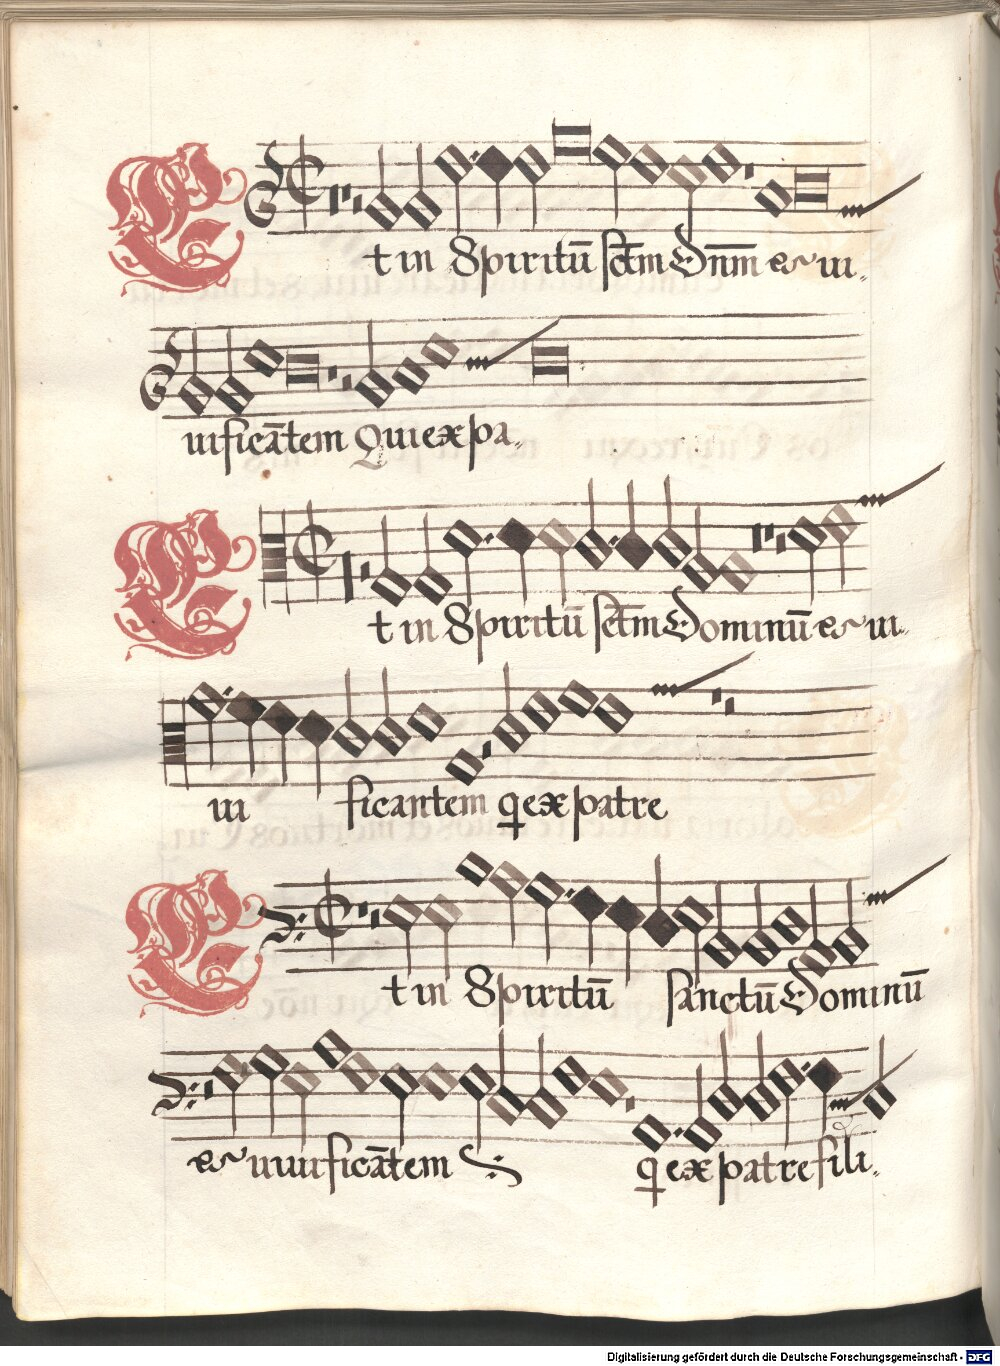 Et in Spiritū sctm Dnm et vi
vificātem Qui ex pa
Et in Spiritū sctm Dominū et vi
vi ficantem q ex patre
Et in Spiritū sanctū Dominū
et vivificātem q ex patre fili
Digitalisierung gefördert durch die Deutsche Forschungsgemeinschaft - DFG